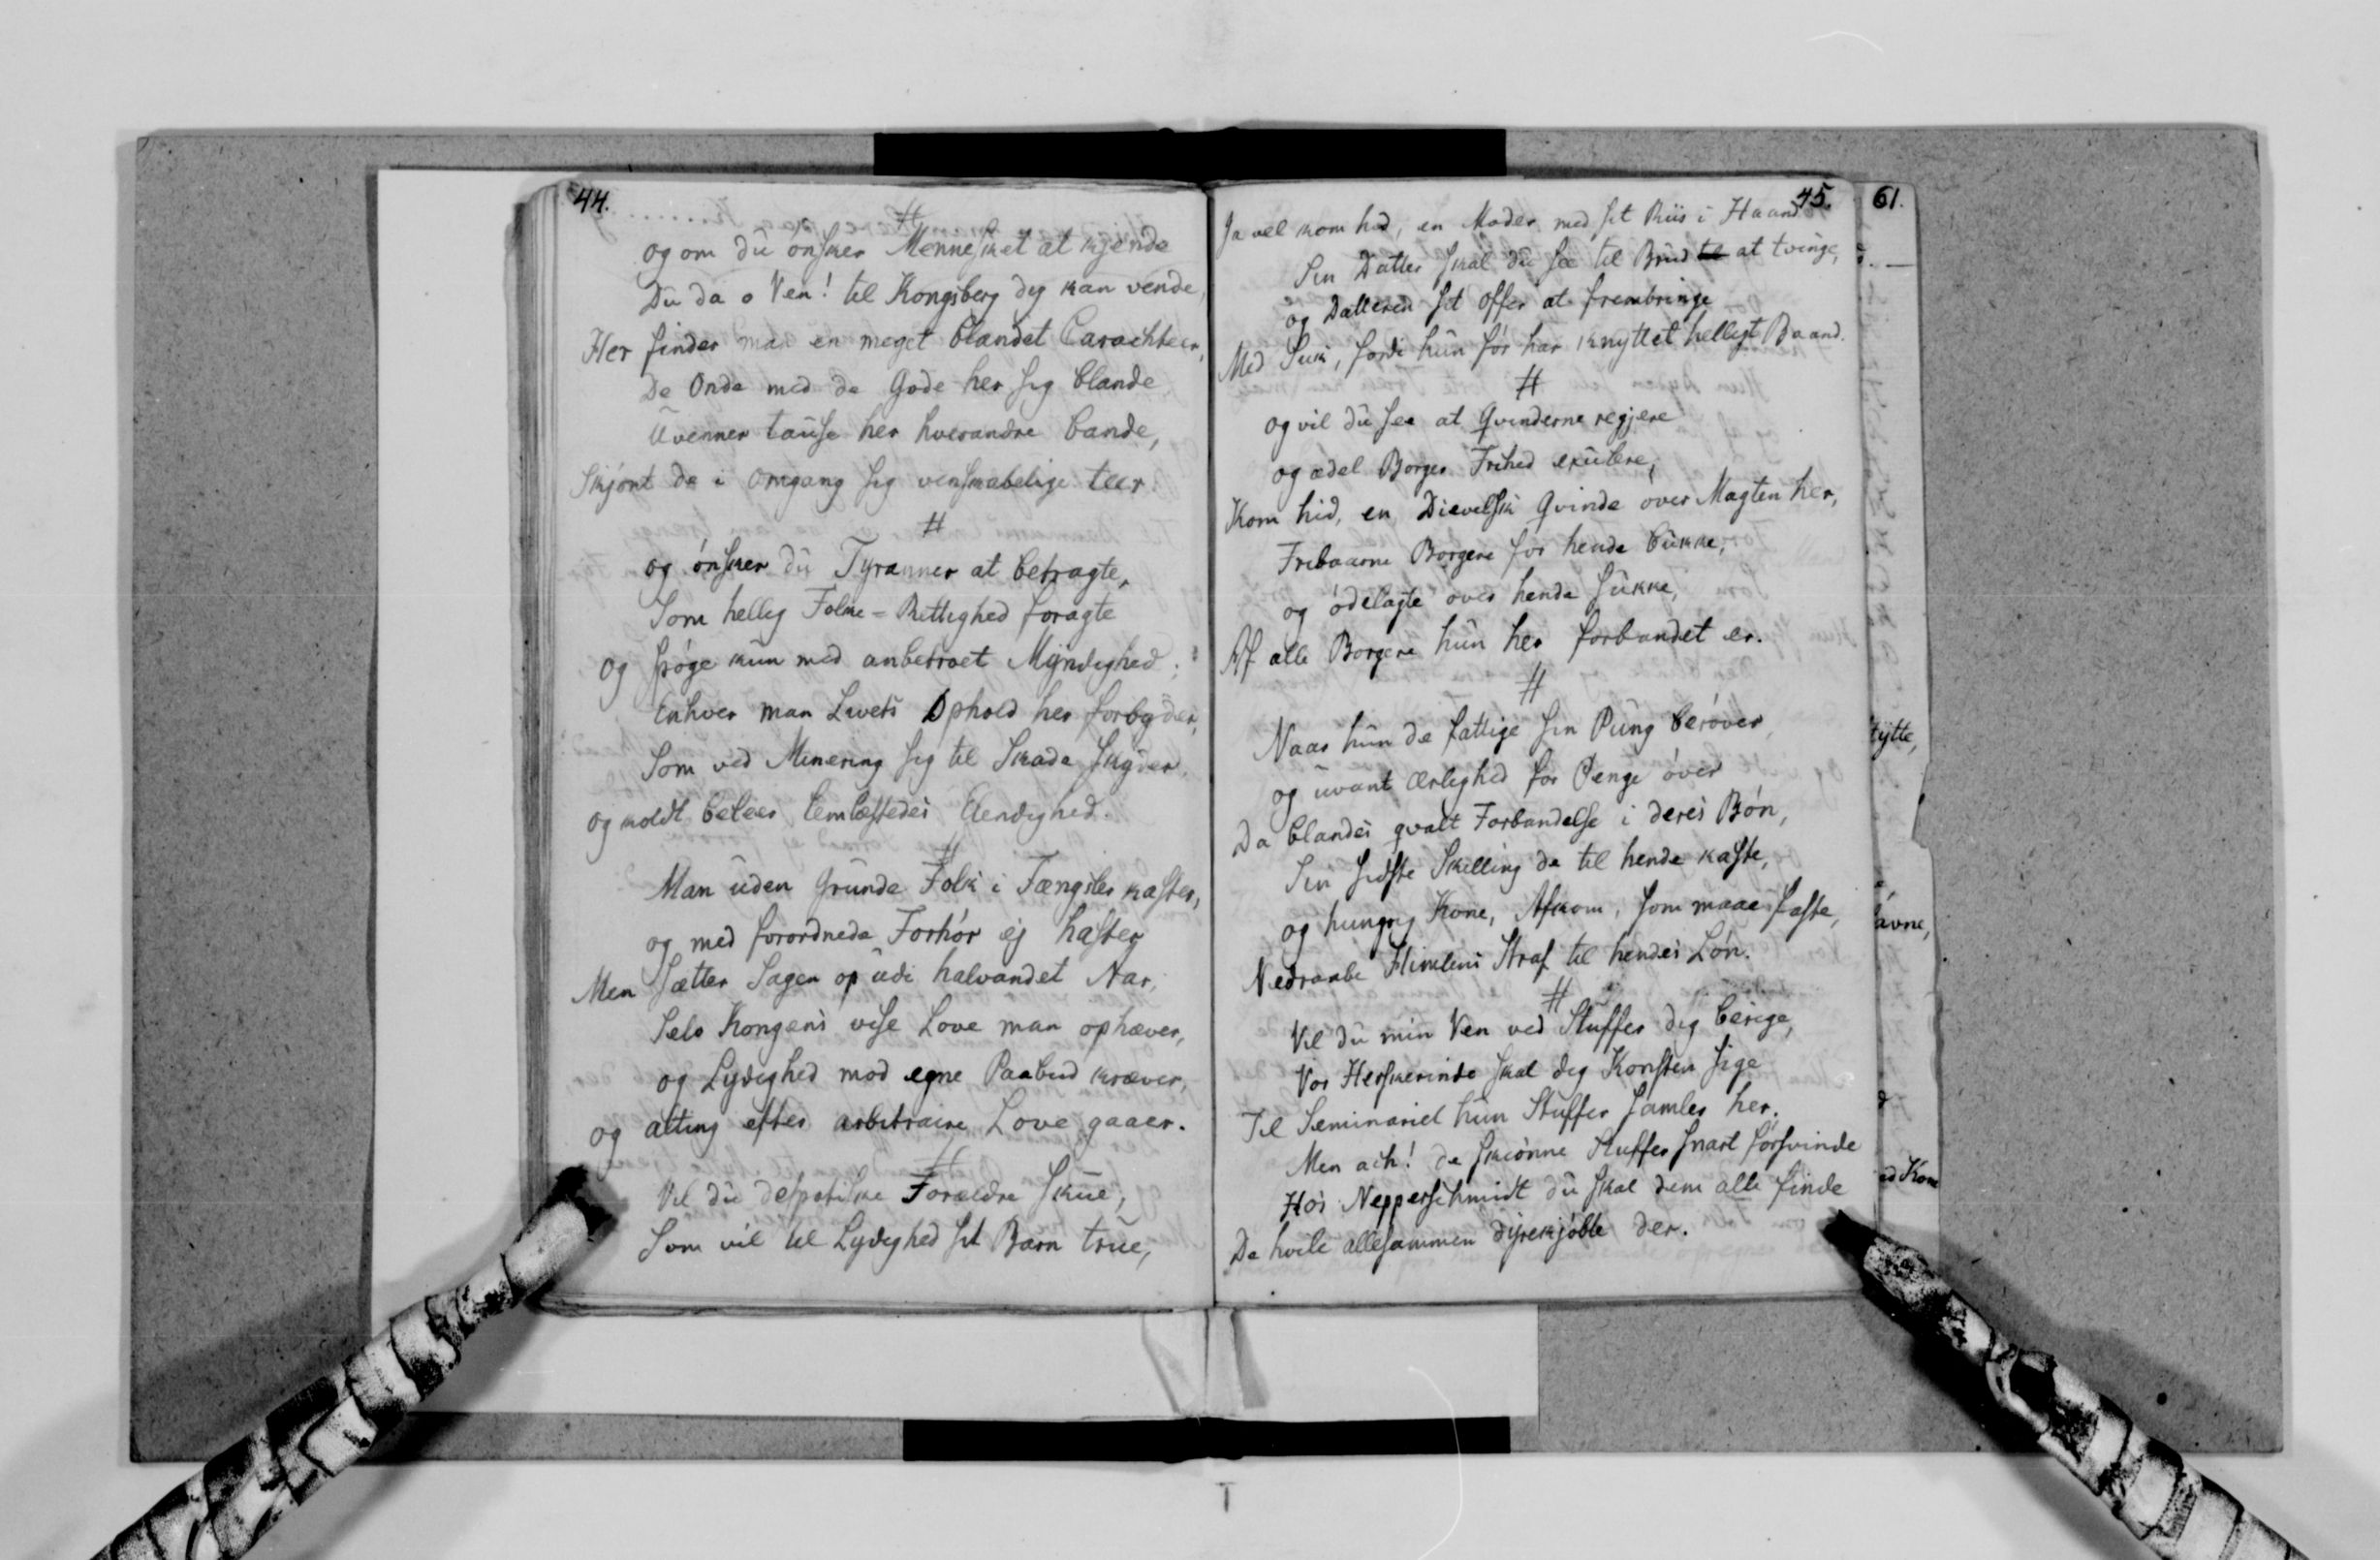 44.
#
og om du ønsker Mennesket at kjende
Du da o Ven! til Kongsberg dig kan vende,
Her finder man en meget blandet Carachteer,
De Onde med de Gode her sig blande
Uvenner tause her hverandre bande,
Skjønt de i Omgang sig venskabelige teer
#
og ønsker du Tyranner at betragte,
Som hellig Folke-Rettighed foragte
og spøge kun med anbetroet Myndighed;
Enhver man Livets Ophold her forbyder,
Som ved Minering sig til Skade skyder,
og koldt beleer lemlæstedes Elendighed.
#
Man uden Grunde Folk i Fængsler kaster,
og med forordnede Forhør ej haster
Men sætter Sagen op udi halvandet Aar,
Selv Kongens vise Love man ophæver,
og Lydighed mod egne Paabud kræver,
og alting efter arbitraire Love gaaer.
#
Vil du despotiske Forældre skue,
Som vil til Lydighed sit Barn true,
45.
Ja vel kom hid, en Moder med sit Riis i Haand
Sin Datter skal du see til Brud til at tvinge,
og Datteren sit Offer at frembringe
Med Suk, fordi hun før har knyttet helligt Baand.
#
og vil du see at Qvinderne regjere
og ædel Borger Frihed exulere,
Kom hid, en Dievelsk Qvinde øver Magten her,
Fribaarne Borgere for hende bukke,
og ødelagte over hende sukke,
Af alle Borgere hun her forbandet er.
#
Naar hun de fattige sin Pung berøver,
og uvant ærlighed for Penge øver
Da blandes qvalt Forbandelse i deres Bøn,
Sin sidste Skilling de til hende kaste,
og hungrig Kone, Afkom, som maae faste,
Nedraabe Himlens Straf til hendes Løn.
#
Vil du min Ven ved Stuffer dig berige,
Vor Herskerinde skal dig Konsten sige
Til Seminariet hun Stuffer samler her.
Men ach! de skiønne Stuffer snart forsvinde
Hos Nepperschmidt du skal dem alle finde
De hvile allesammen dyrekjøbte der.
61.
tytte,
avne,
ed Kone